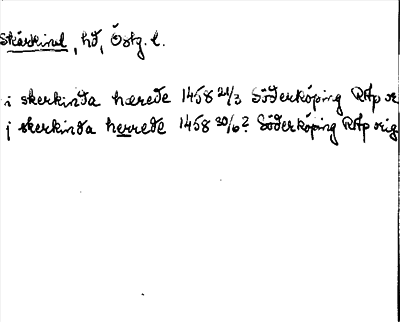 Skärkind, hd, Östg. l.
i skerkinda hærede 1458 21/3 Söderköping RAp or
j skerkinda herrede 1458 30/6? Söderköping RAp orig